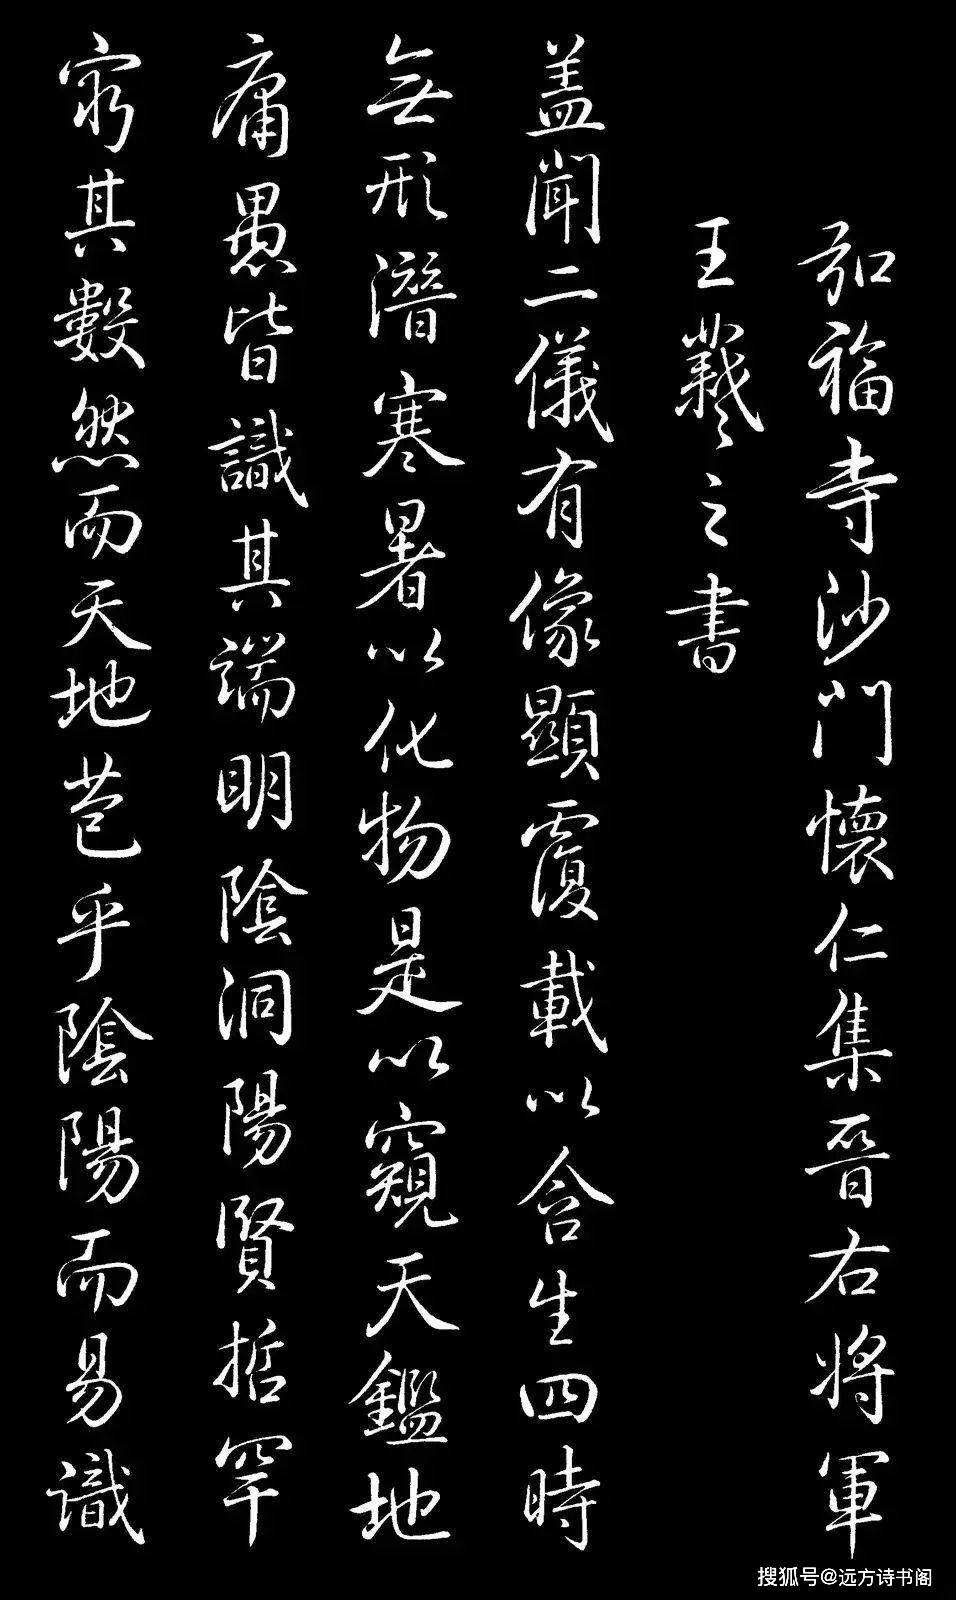 弘福寺沙門懷仁集晉右將軍
王羲之書
盖聞二儀有像顯覆載以含生四時
無形潛寒暑以化物是以窺天鑑地
庸愚皆識其端明陰洞陽賢哲罕
窮其數然而天地苞乎陰陽而易識
搜狐号@远方诗书阁